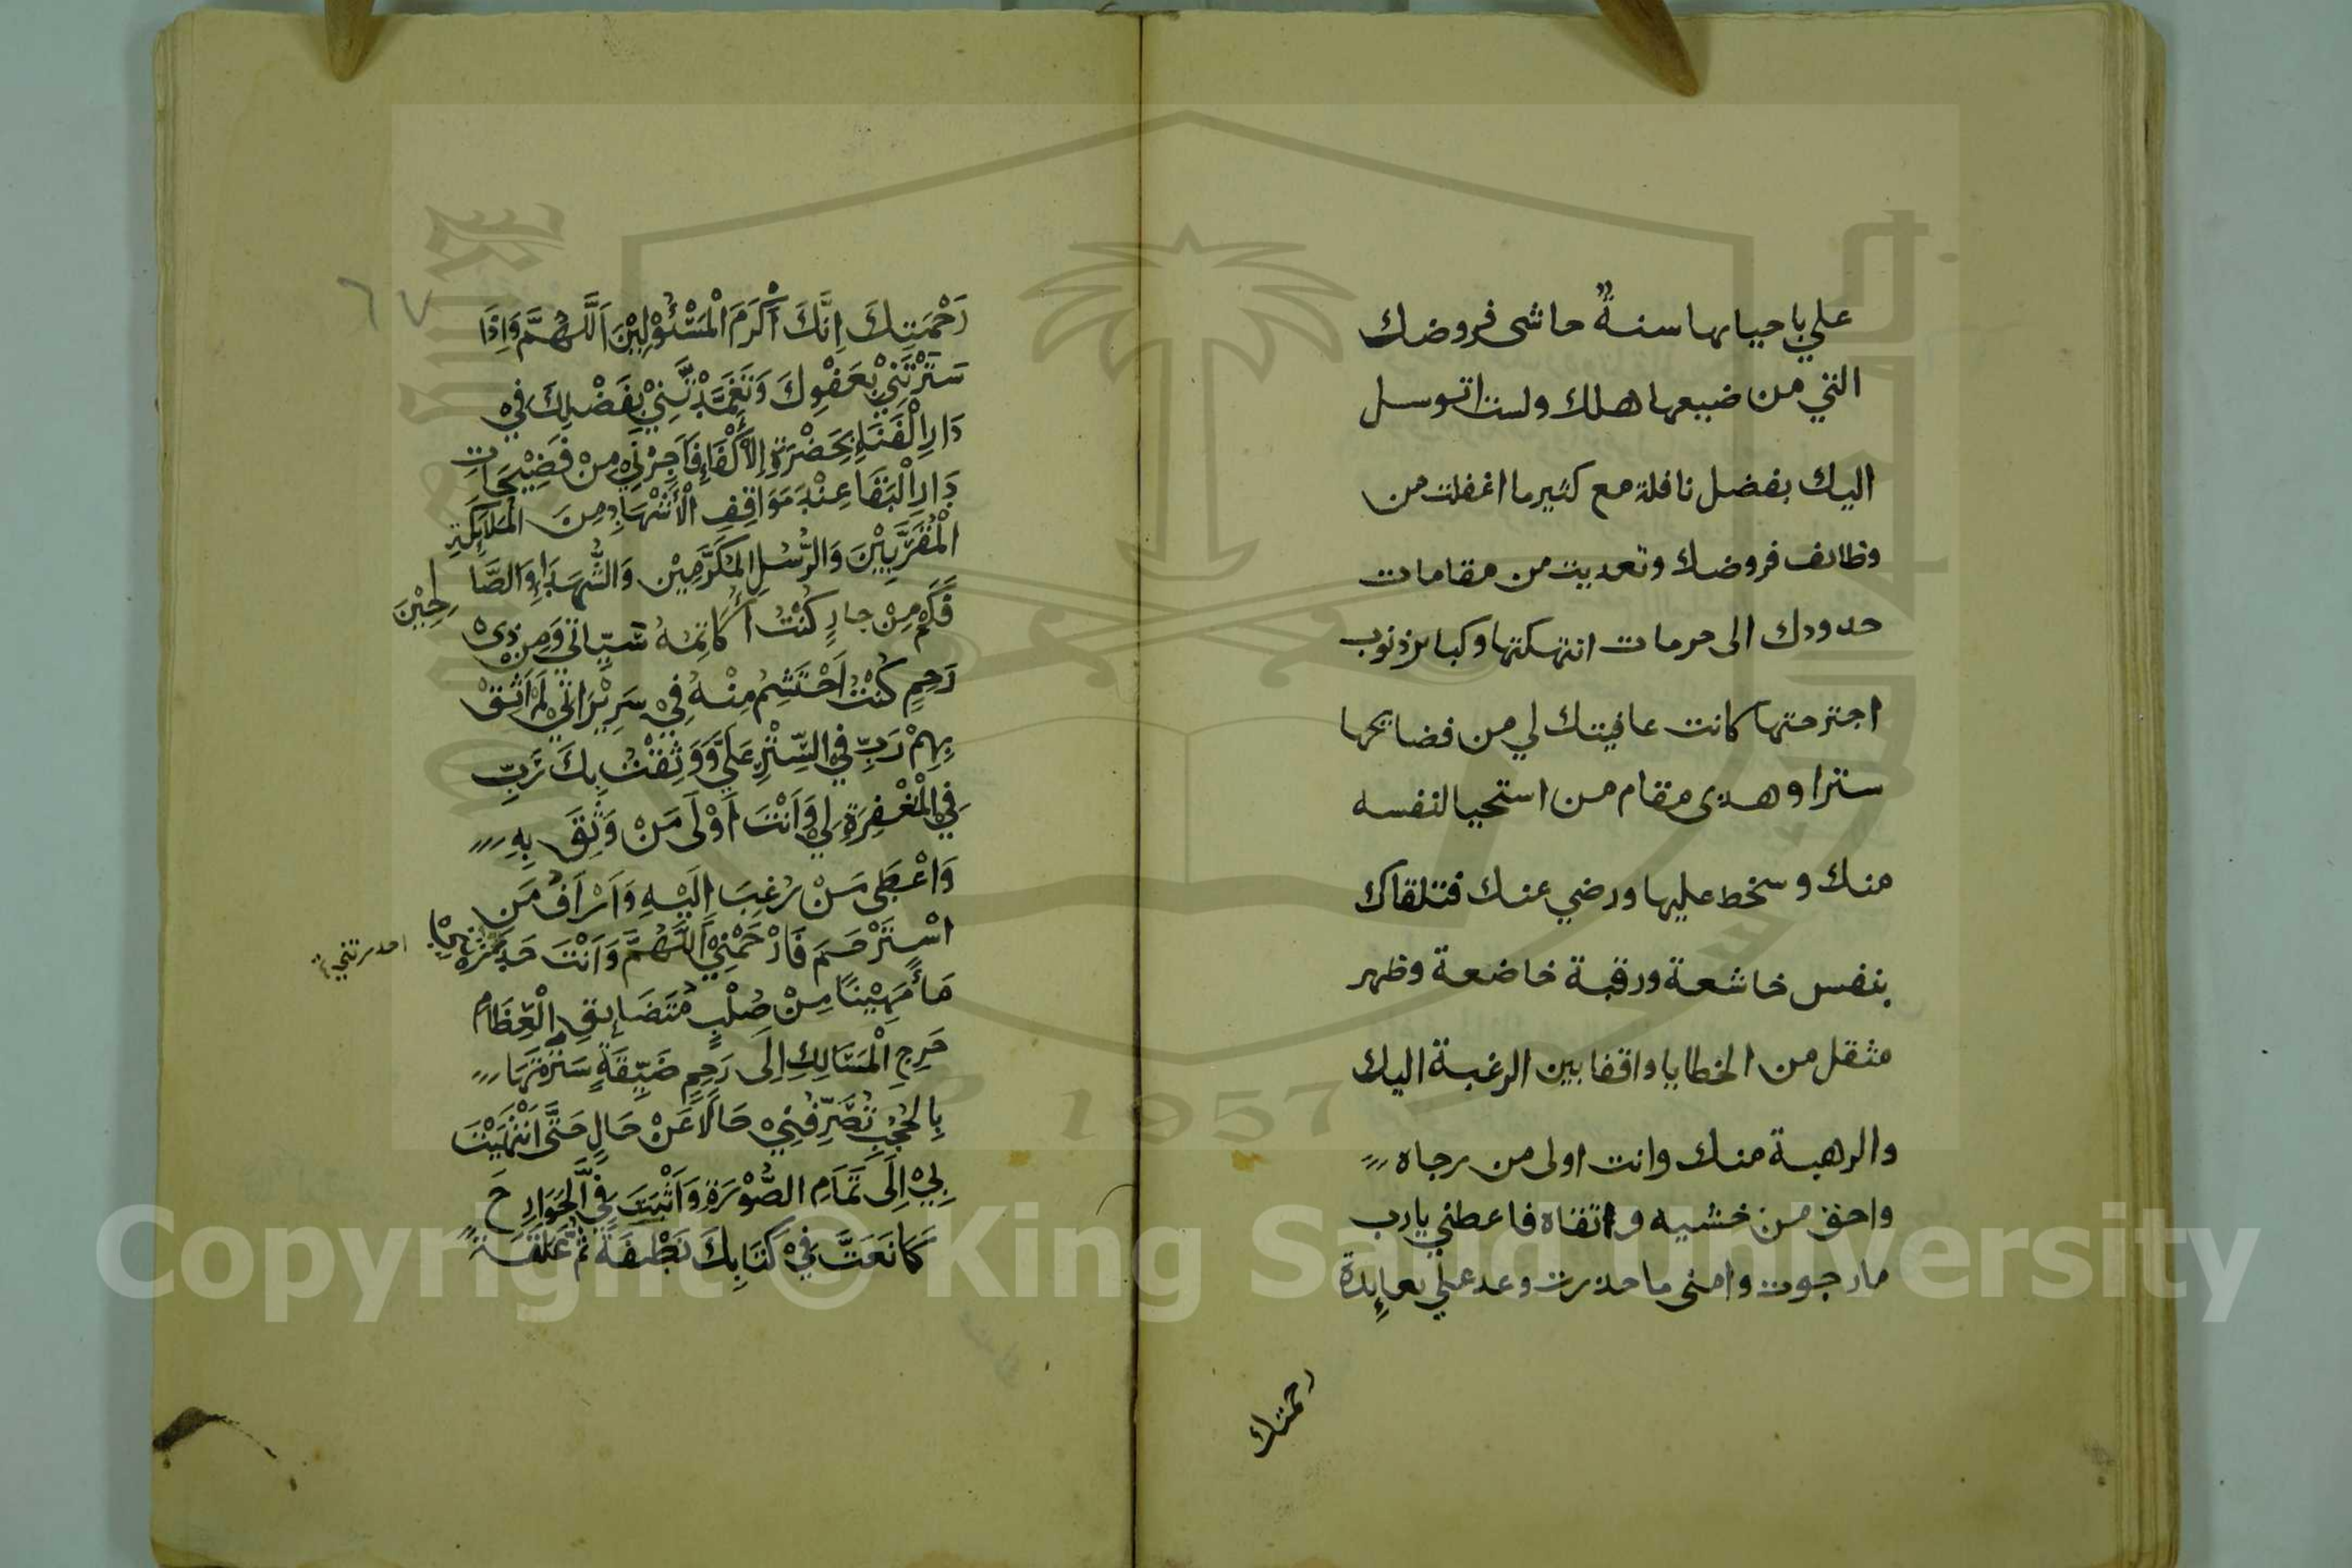 علي باحيايها سنة حاشى فروضك
التي من ضيعها هلك ولست اتوسل
اليك بفضل نافلة مع كثير ما اغفلت من
وظائف فروضك وتعديت من مقامات
حدودك الى حرمات انتهكتها وكبائر ذنوب
اجترحتها كانت عافيتك لي من فضائحها
سترا وهدى مقام من استحيا لنفسه
منك وسخط عليها ورضي عنك فتلقاك
بنفس خاشعة ورقبة خاضعة وظهر
مثقل من الخطايا واقفا بين الرغبة اليك
والرهبة منك وانت اولى من رجاه
واحق من خشيه واتقاه فاعطني يارب
مارجوت وامنى ما حذرت وعد علي بعايدة
رحمتك
٦٧
رَحْمَتِكَ اِنَّكَ اَكْرَمَ الْمَسْئُوْلِيْنَ اَللَّهُمَّ وَاِذَا
سَتَرْتَنِيْ بِعَفْوِكَ وَتَغَمَّدْتَّنِيْ بِفَضْلِكَ فِيْ
دَارِ الْفَنَاءِ بِحَضْرَةِ الْاَكْفَاءِ فَاَجِرْنِيْ مِنْ فَضِيْحَاتِ
دَارِ الْبَقَا عِنْدَ مَوَاقِفِ الْاَشْهَادِ مِنَ الْمَلَائِكَةِ
الْمُقَرَّبِيْنَ وَالرُّسُلِ الْمُكَرَّمِيْنَ وَالشُّهَدَاءِ وَالصَّالِحِيْنَ
فَكَمْ مِنْ جَارٍ كُنْتُ اُكَاتِمُهُ سَيِّاتِيْ وَمِنْ ذِيْ
رَحِمٍ كُنْتُ اَحْتَشِمُ مِنْهُ فِيْ سَرِيْرَاتِيْ لَمْ اَثِقْ
بِهِمْ رَبِّ فِي السِّتْرِ عَلَيَّ وَوَثِقْتُ بِكَ رَبِّ
فِي الْمَغْفِرَةِ لِيْ وَاَنْتَ اَوْلَى مَنْ وَثِقَ بِهِ
وَاَعْطَى مَنْ رُغِبَ اِلَيْهِ وَاَرْاَفُ مَنِ
اسْتُرْحِمَ فَارْحَمْنِيْ اَللَّهُمَّ وَاَنْتَ حَدَرْتَنِيْ
احدرتني
مَاءً مَهِيْنًا مِنْ صُلْبٍ مُتَضَايِقِ الْعِظَامِ
حَرِجِ الْمَسَالِكِ اِلَى رَحِمٍ ضَيِّقَةٍ سَتَرْتَهَا
بِالْحُجُبِ تُصَرِّفُنِيْ حَالًا عَنْ حَالٍ حَتَّى انْتَهَيْتَ
بِيْ اِلَى تَمَامِ الصُّوْرَةِ وَاَثْبَتَّ فِيَّ الْجَوَارِحَ
كَمَا نَعَتَّ فِيْ كِتَابِكَ نُطْفَةً ثُمَّ عَلَقَةً
1957
Copyright © King Saud University